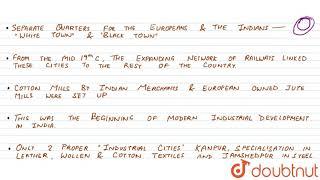 • SEPARATE QUARTERS FOR THE EUROPEANS & THE INDIANS —
"WHITE TOWN" & "BLACK TOWN"
• FROM THE MID 19TH C, THE EXPANDING NETWORK OF RAILWAYS LINKED
THESE CITIES TO THE REST OF THE COUNTRY.
• COTTON MILLS BY INDIAN MERCHANTS & EUROPEAN OWNED JUTE
MILLS WERE SET UP
• THIS WAS THE BEGINNING OF MODERN INDUSTRIAL DEVELOPMENT
IN INDIA.
• ONLY 2 PROPER "INDUSTRIAL CITIES" KANPUR, SPECIALISATION IN
LEATHER, WOLLEN & COTTON TEXTILES AND JAMSHEDPUR IN STEEL
doubtnut